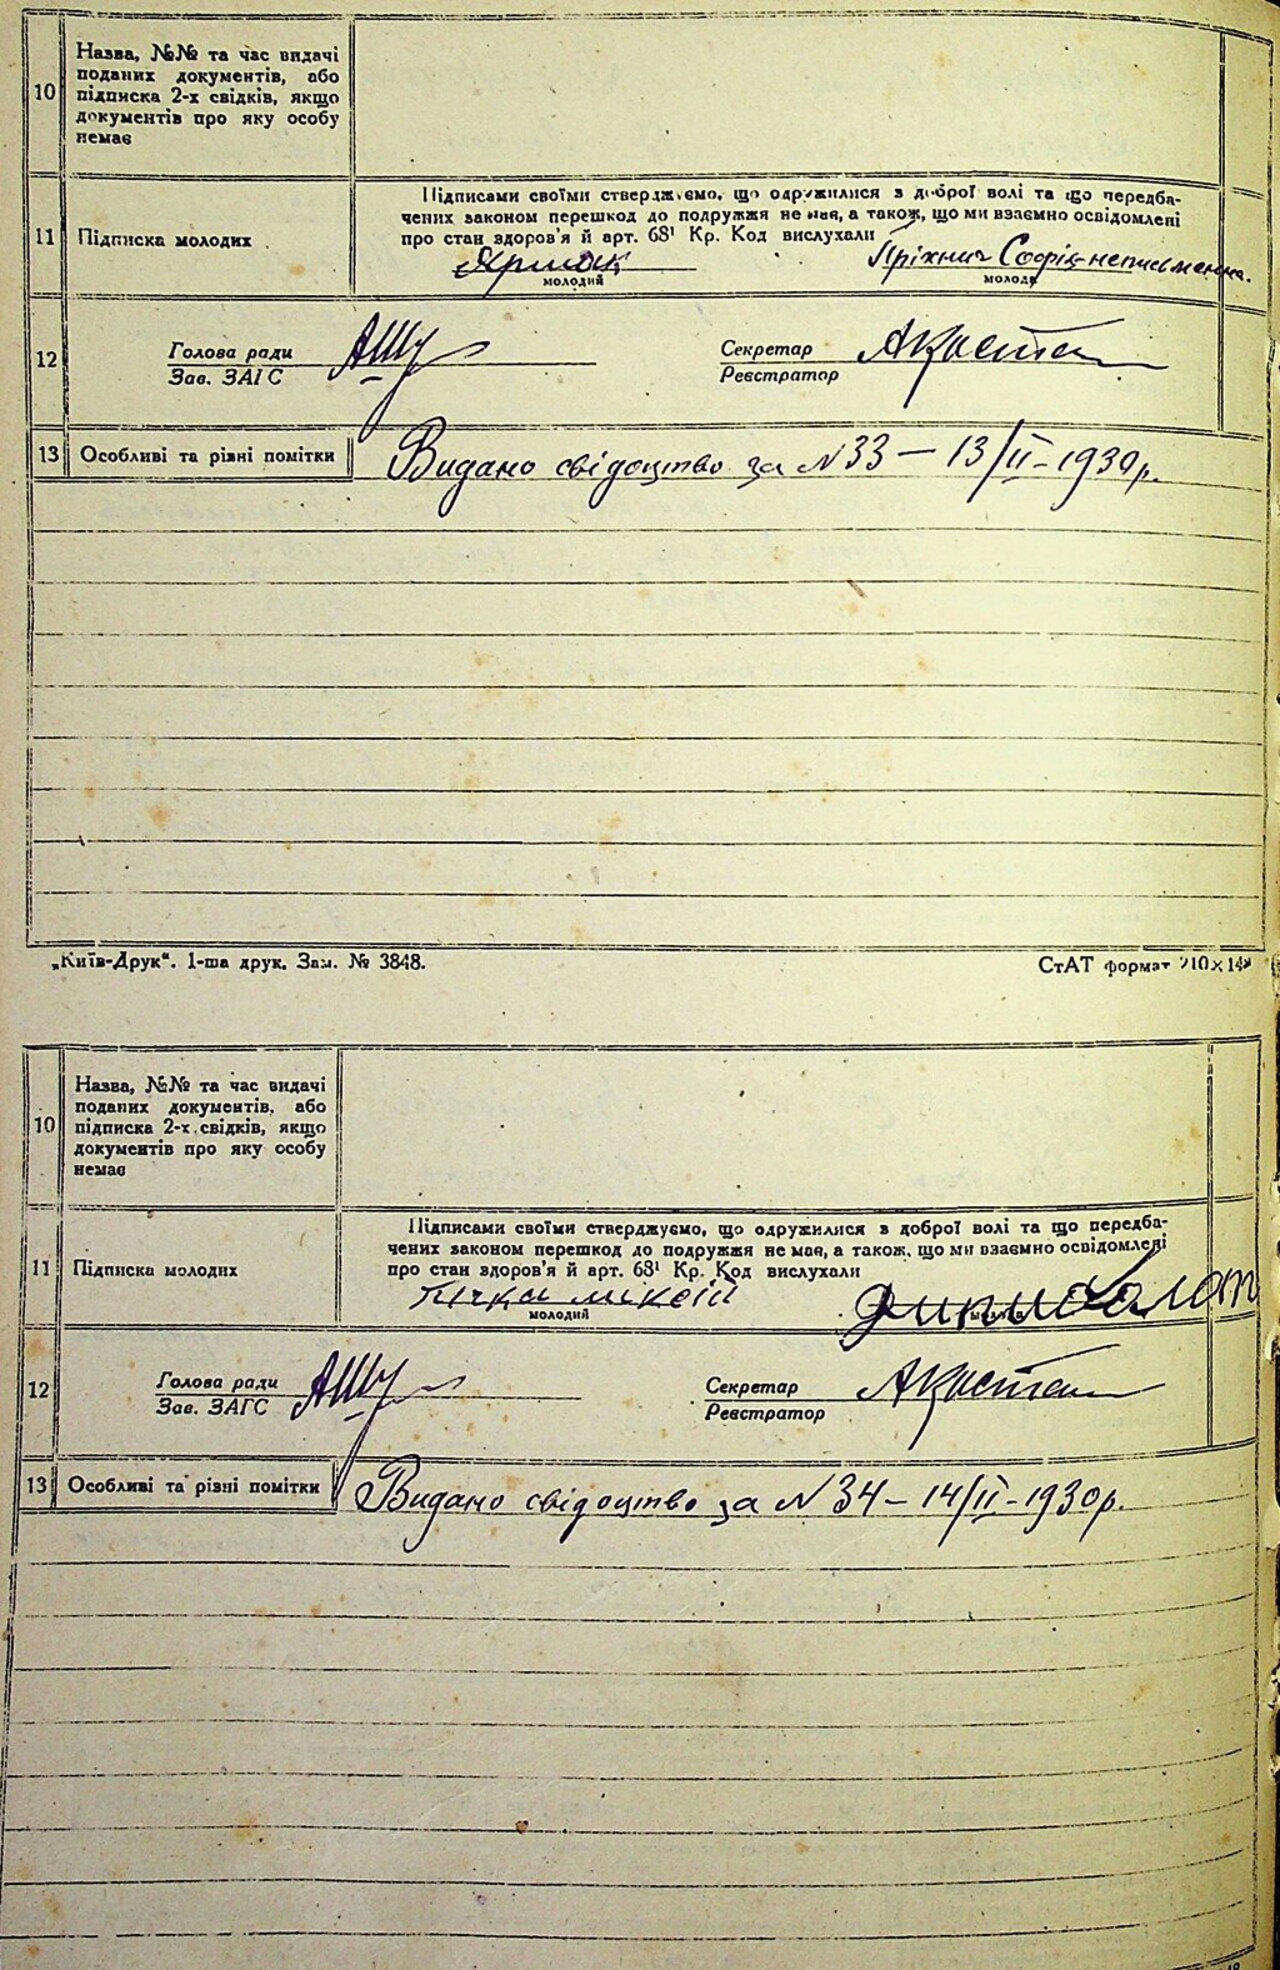 10
Назва, №№ та час видачі
поданих документів, або
підписка 2-х свідків, якщо
документів про яку особу
немає
11
Підписка молодих
Підписами своїми стверджуємо, що одружилися з доброї волі та що передба-
чених законом перешкод до подружжя не має, а також, що ми взаємно освідомлені
про стан здоров'я й арт. 68¹ Кр. Код вислухали
Софія-неписьменна.
молодий
молода
12
Голова ради
Зав. ЗАГС
Секретар
Реєстратор
13
Особливі та різні помітки
Видано свідоцтво за N 33 — 13/II-1930р.
„Київ-Друк“. 1-ша друк. Зам. № 3848.
СтАТ формат 210×14
10
Назва, №№ та час видачі
поданих документів, або
підписка 2-х свідків, якщо
документів про яку особу
немає
11
Підписка молодих
Підписами своїми стверджуємо, що одружилися з доброї волі та що передба-
чених законом перешкод до подружжя не має, а також, що ми взаємно освідомлені
про стан здоров'я й арт. 68¹ Кр. Код вислухали
молодий
12
Голова ради
Зав. ЗАГС
Секретар
Реєстратор
13
Особливі та різні помітки
Видано свідоцтво за N 34 — 14/II-1930р.